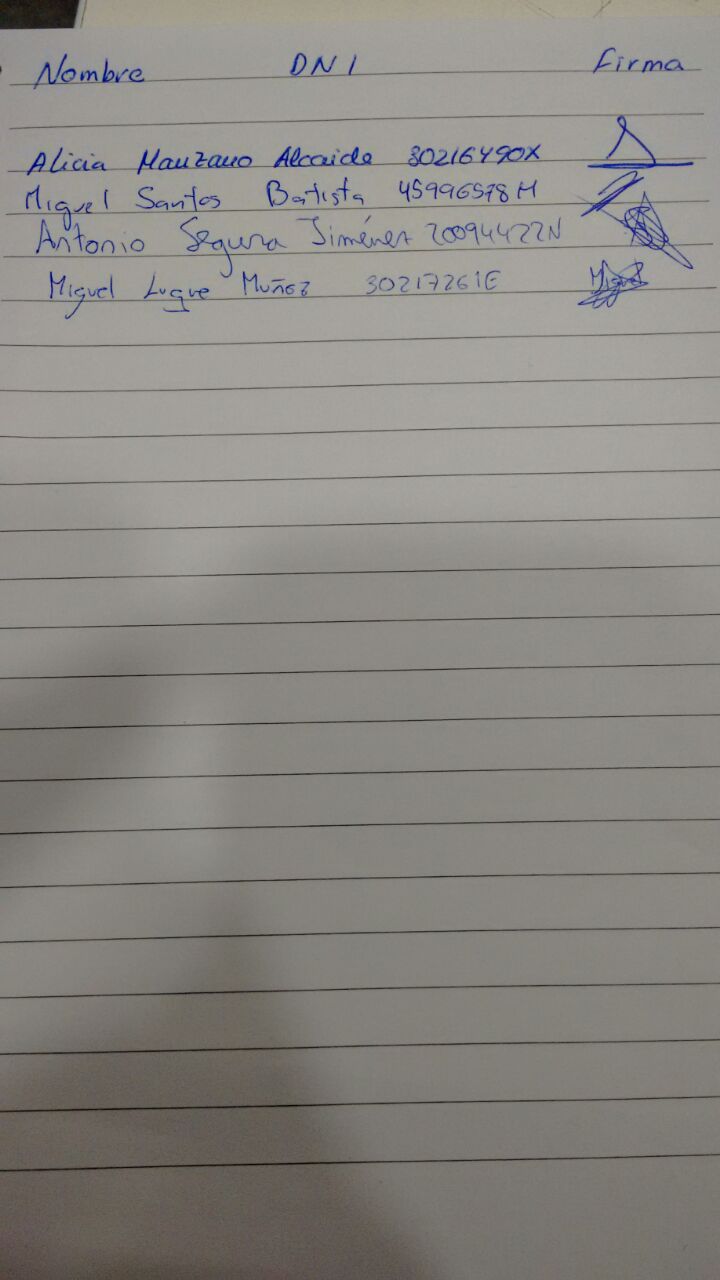 Nombre DNI Firma
Alicia Manzano Alcaide 30216490X
Miguel Santos Batista 45996578M
Antonio Segura Jiménez 20094422N
Miguel Luque Muñoz 30217261E Miguel